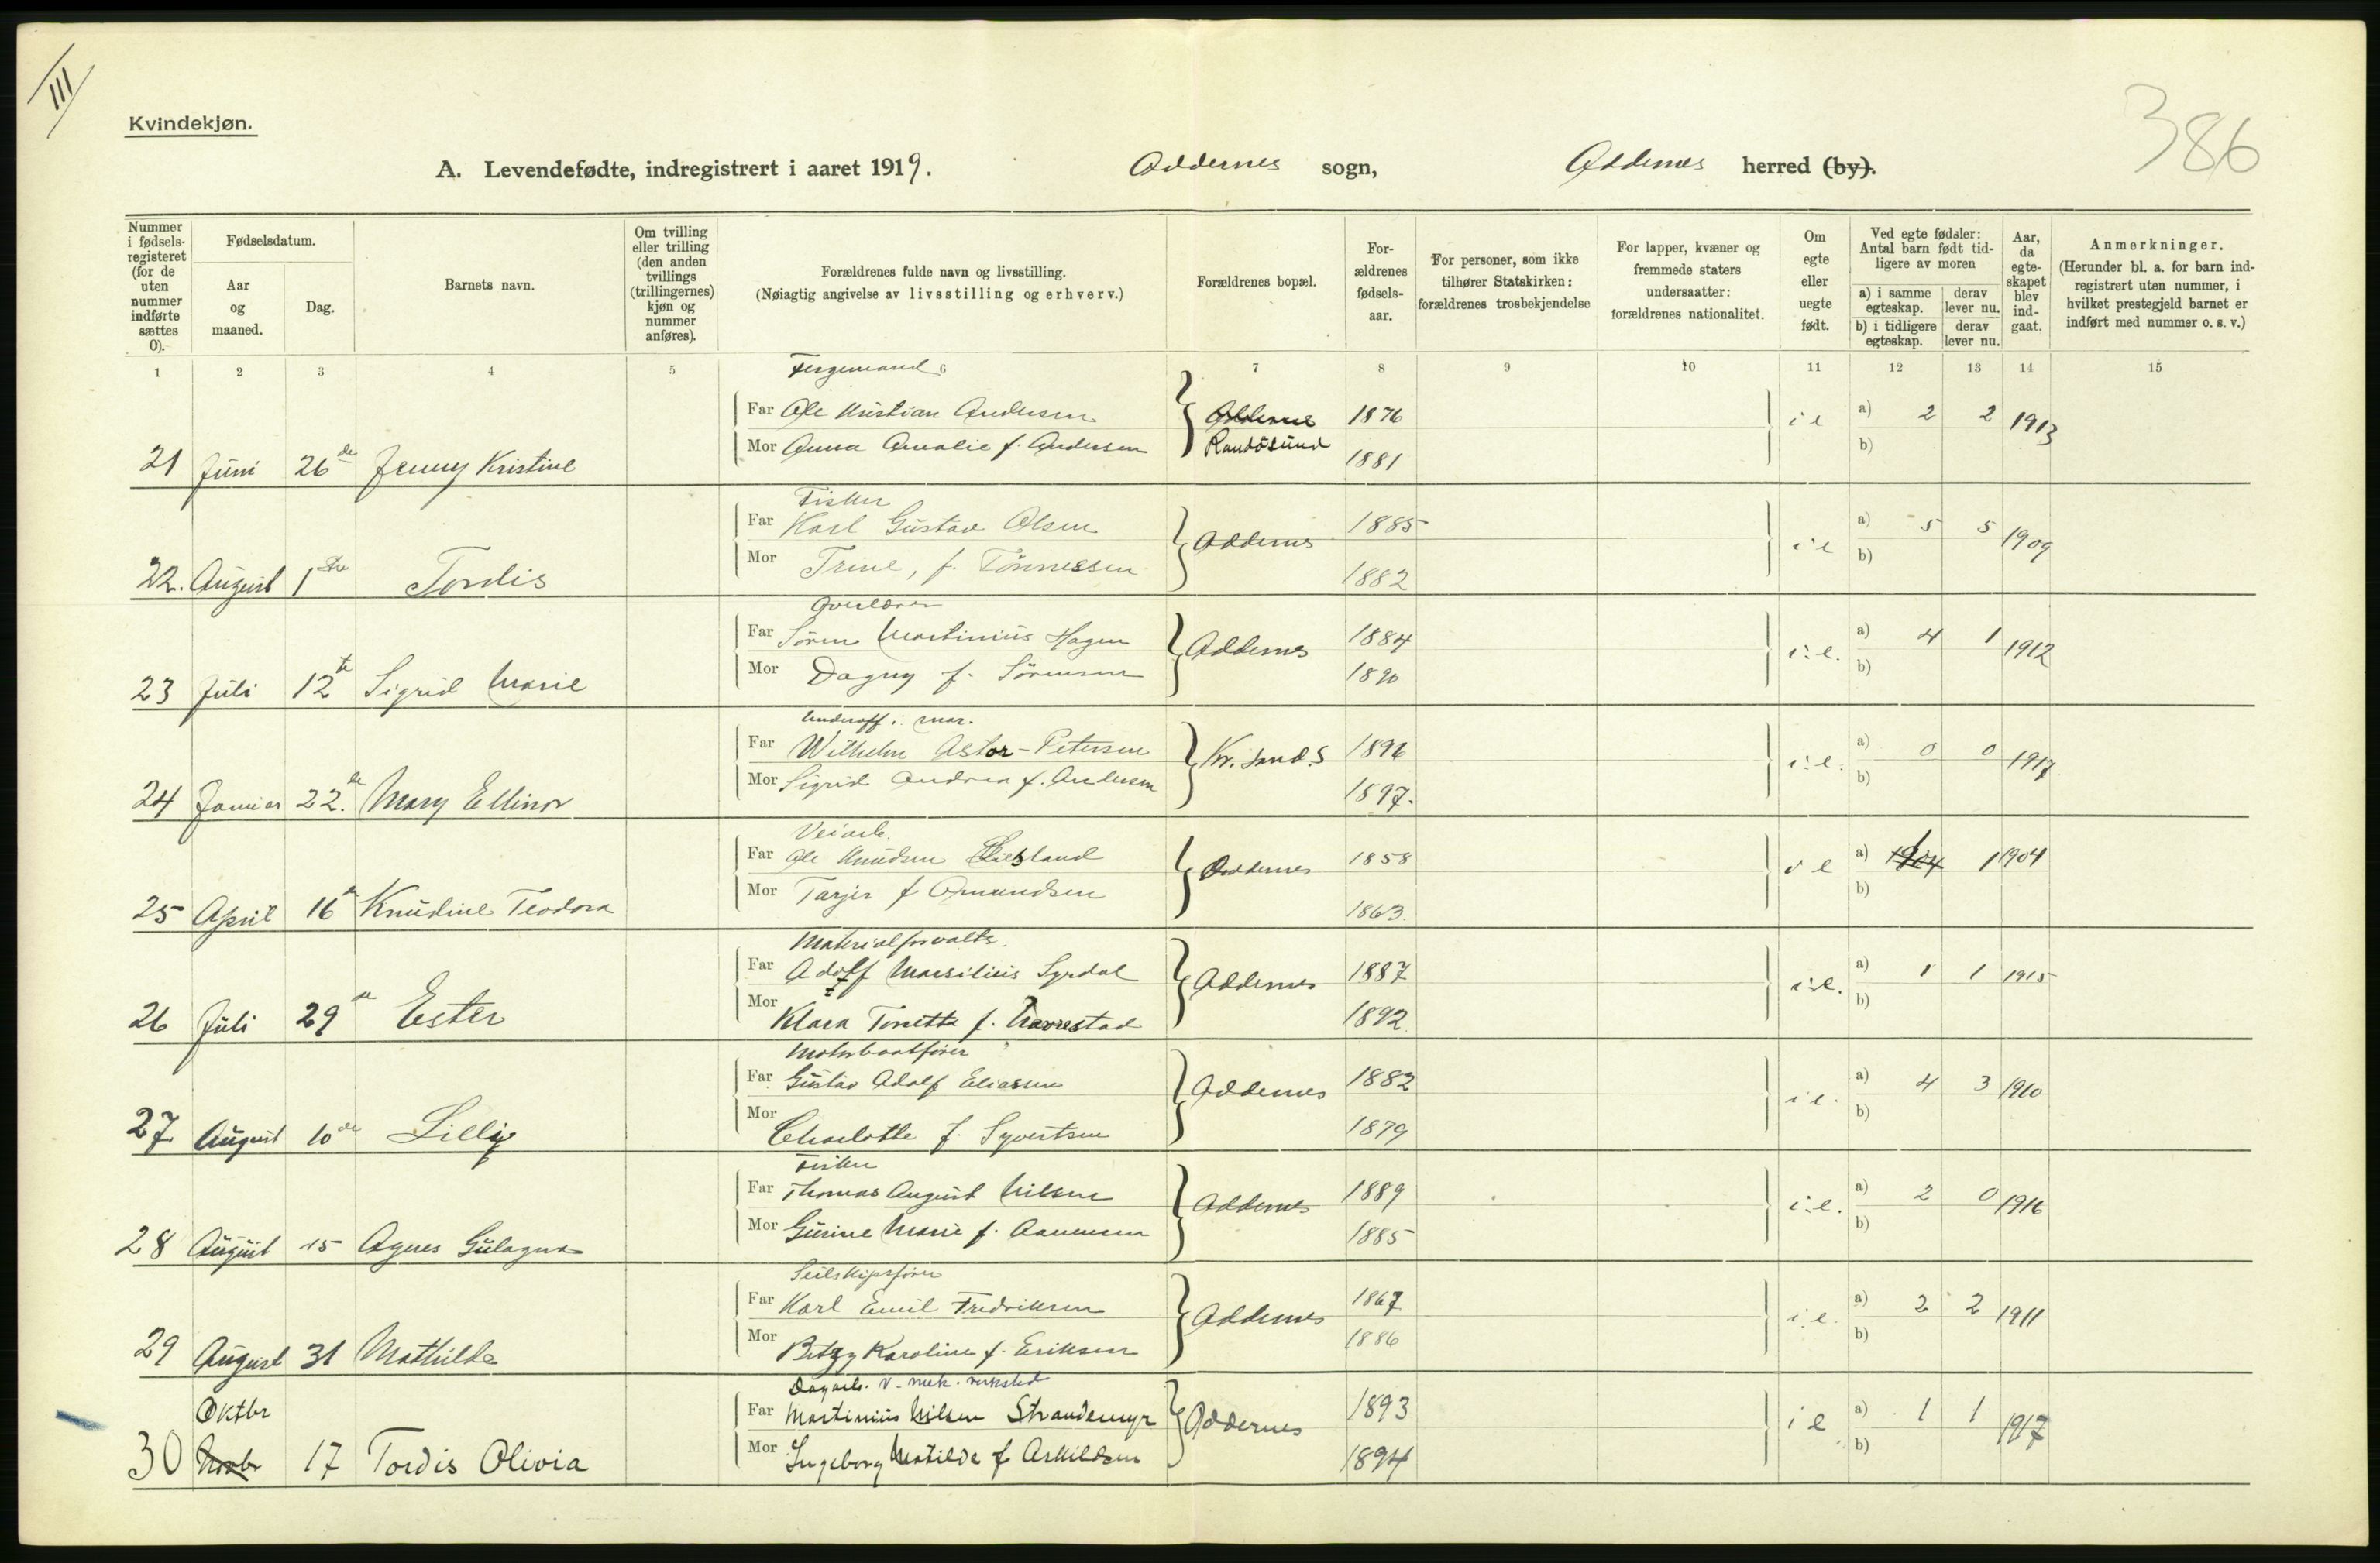 III
Kvindekjøn.
386
A. Levendefødte, indregistrert i aaret 1919. Oddernes sogn, Oddernes herred (by).
Nummer i fødselsregisteret (for de uten nummer indførte sættes 0).
Fødselsdatum.
Aar og maaned.
Dag.
Barnets navn.
Om tvilling eller trilling (den anden tvillings (trillingernes) kjøn og nummer anføres).
Forældrenes fulde navn og livsstilling.
(Nøiagtig angivelse av livsstilling og erhverv.)
Forældrenes bopæl.
Forældrenes fødselsaar.
For personer, som ikke tilhører Statskirken: forældrenes trosbekjendelse
For lapper, kvæner og fremmede staters undersaatter: forældrenes nationalitet.
Om egte eller uegte født.
Ved egte fødsler: Antal barn født tidligere av moren
a) i samme egteskap.
derav lever nu.
b) i tidligere egteskap.
derav lever nu.
Aar, da egteskapet blev indgaat.
Anmerkninger.
(Herunder bl. a. for barn indregistrert uten nummer, i hvilket prestegjeld barnet er indført med nummer o. s. v.)
1 2 3 4 5 6 7 8 9 10 11 12 13 14 15
Fergemand
Far Ole Kristian Andersen Oddernes 1876 i e a) 2 2 1913
Mor Anna Amalie f. Andersen Randøsund 1881 b)
21 Juni 26de Jenny Kristine
Fisker
Far Karl Gustav Olsen Oddernes 1885 i e a) 5 5 1909
Mor Trine, f. Tønnessen 1882 b)
22. August 1ste Tordis
Overlærer
Far Søren Martinius Hagen Oddernes 1884 i. e. a) 4 1 1912
Mor Dagny f. Sørensen 1890 b)
23 Juli 12te Sigrid Marie
Underoff. i mar.
Far Wilhelm Astor-Petersen Kr. sand. S 1896 i. e. a) 0 0 1917
Mor Sigrid Andrea f. Andersen 1897. b)
24 Januar 22.de Mary Ellinor
Veiarb.
Far Ole Knudsen Oddernes 1858 i e a) 1904 1 1904
Mor Tarjer f Omundsen 1863. b)
25 April 16de Knudine Teodora
Materialforvalter.
Far Adolf Marsilius Syrdal Oddernes 1887 i. e. a) 1 1 1915
Mor Klara Tonette f. 1892. b)
26 Juli 29de Ester
Motorbaatfører
Far Gustav Adolf Eliassen Oddernes 1882 i e. a) 4 3 1910
Mor Charlotte f. Syvertsen 1879 b)
27 August 10de Lilly
Fisker
Far Thomas August Nilsen Oddernes 1889 i. e. a) 2 0 1916
Mor Gurine Marie f. Aanensen 1885 b)
28 August 15 Agnes Gulagna
Seilskipsfører
Far Karl Emil Fredriksen Oddernes 1867 i. e. a) 2 2 1911
Mor Betzy Karoline f. Eriksen 1886 b)
29 August 31 Mathilde
Dagarb. v. mek. verksted
Oktbr
Far Martinius Nilsen Strandemyr Oddernes 1893 i e a) 1 1 1917
Mor Ingeborg Matilde f Askildsen 1894 b)
30 Novbr 17 Tordis Olivia